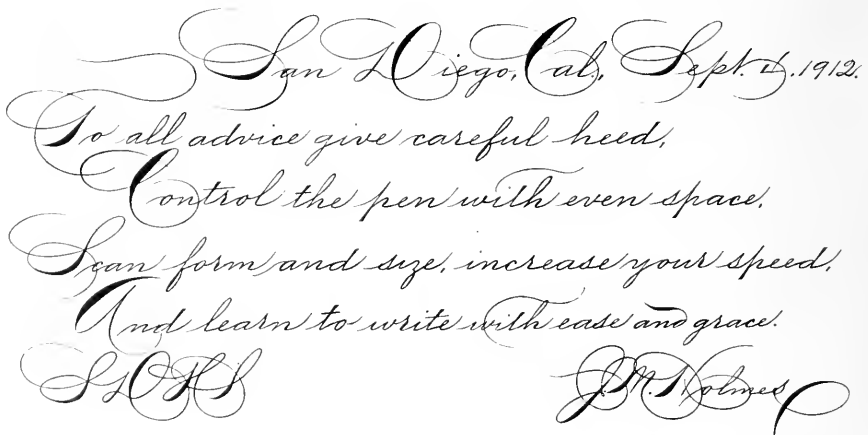 San Diego, Cal., Sept. 4, 1912.
To all advice give careful heed,
Control the pen with even space,
Scan form and size, increase your speed,
And learn to write with ease and grace.
SDHS J. M. Holmes